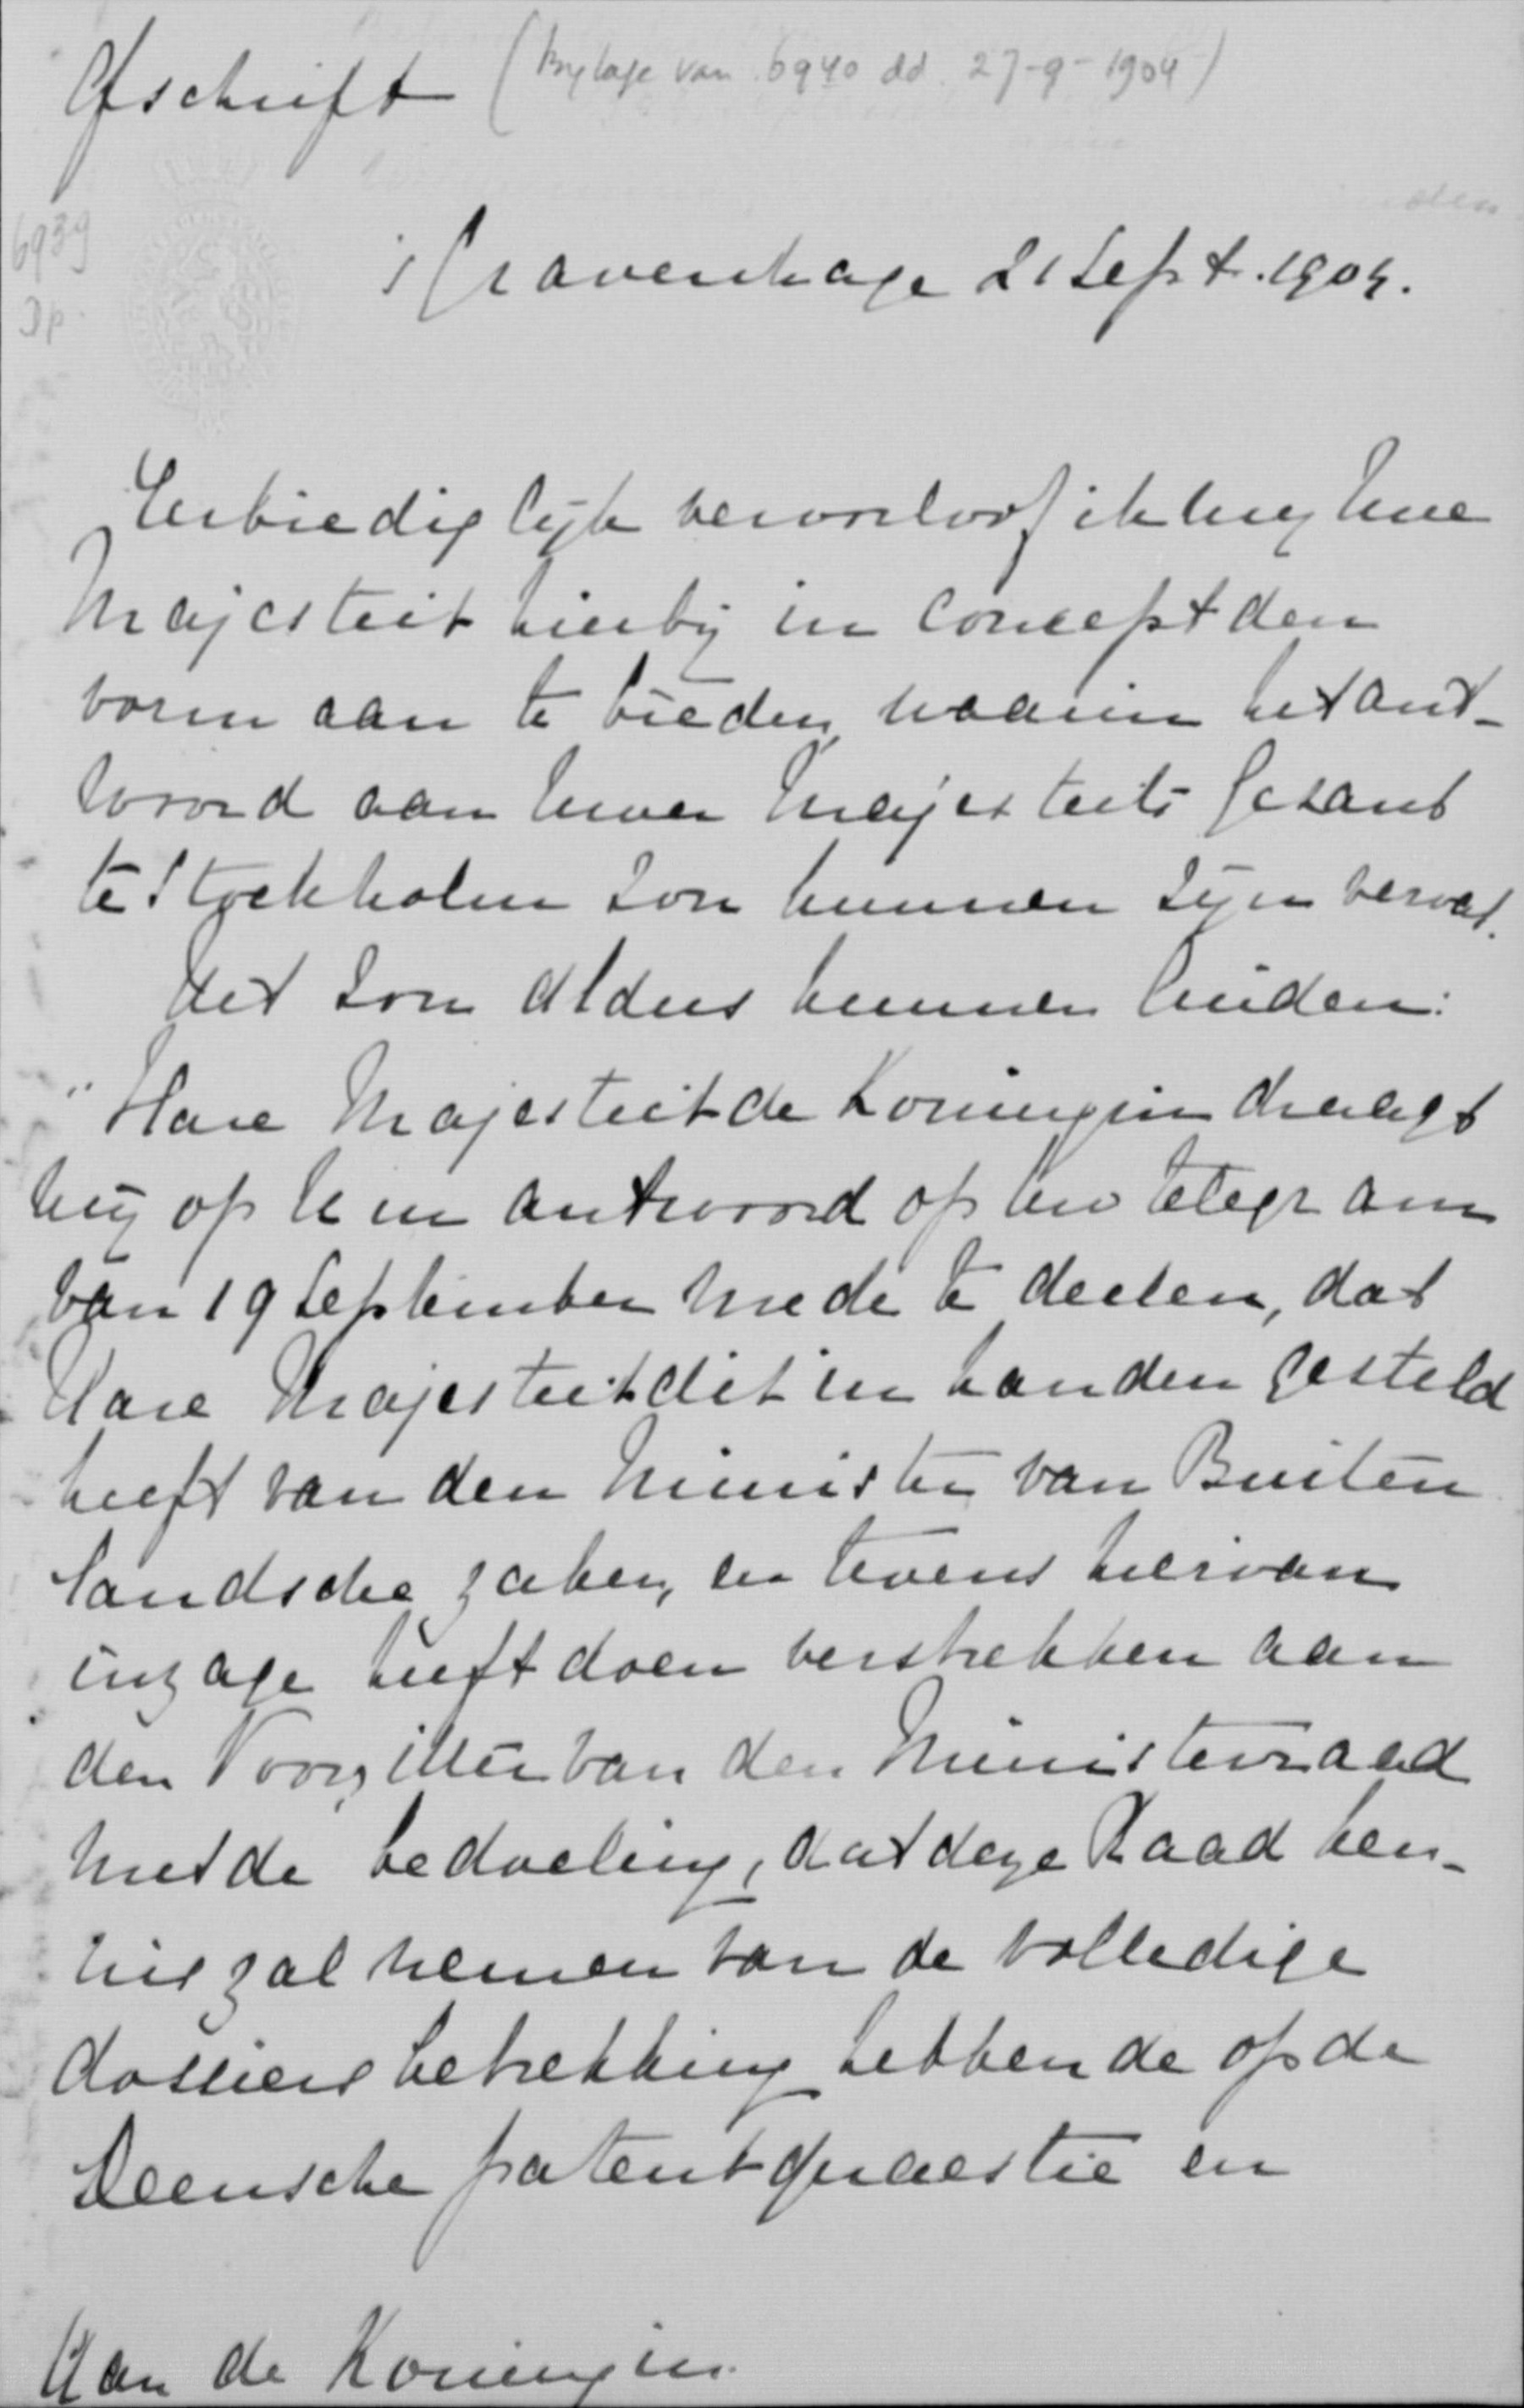 Afschrift (Bylage van 6940 dd. 27-9-1904)
6939
Dp.
's Gravenhage 21 Sept. 1904.
Eerbiediglijk veroorloof ik mij Uwe
Majesteit hierbij in concept den
vorm aan te bieden, waarin het ant-
woord aan Uwer Majesteits Gezant
te Stockholm zou kunnen zijn vervat.
Het zou aldus kunnen luiden:
"Hare Majesteit de Koningin draagt
mij op U in antwoord op Uw telegram
van 19 September mede te deelen, dat
Hare Majesteit dit in handen gesteld
heeft van den Minister van Buiten
landsche zaken, en tevens hiervan
inzage heeft doen verstrekken aan
den Voorzitter van den Ministerraad
met de bedoeling, dat deze Raad ken-
nis zal nemen van de volledige
dossiers betrekking hebbende op de
Deensche patentquaestie en
Aan de Koningin.